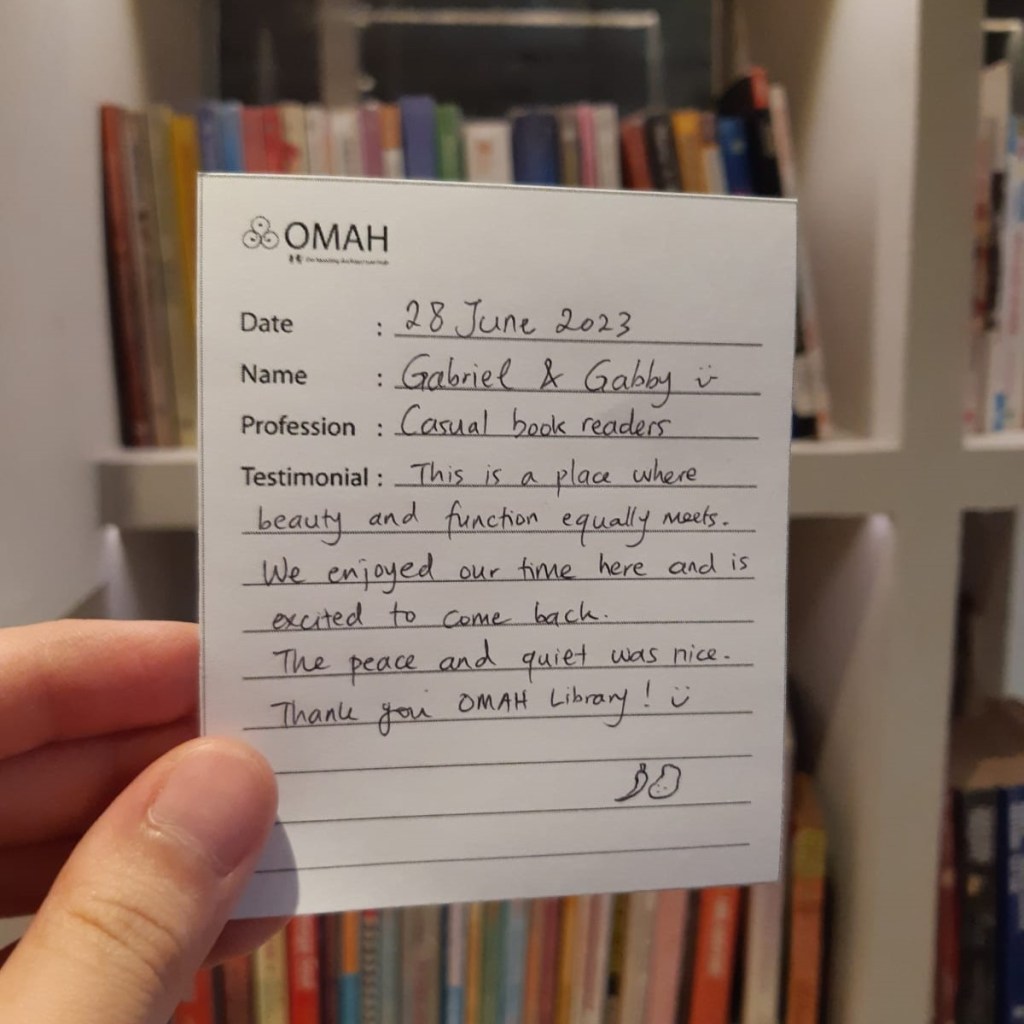 OMAH
Date : 28 June 2023
Name : Gabriel & Gabby :)
Profession : Casual book readers
Testimonial : This is a place where
beauty and function equally meets.
We enjoyed our time here and is
excited to come back.
The peace and quiet was nice.
Thank you OMAH Library! :)